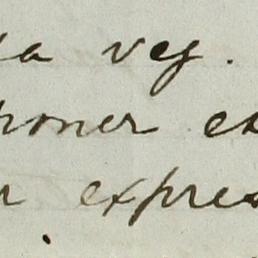 la vez.
poner es
r expres